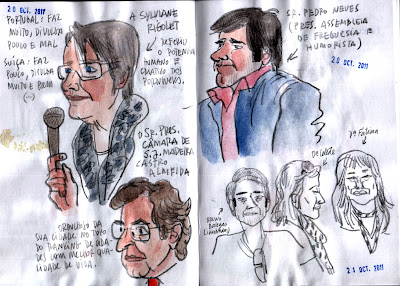 20 OCT. 2011
PORTUGAL: FAZ
MUITO, DIVULGA
POUCO E MAL
SUIÇA: FAZ
POUCO, DIVULGA
MUITO E BEM
(...)
A SYLVIANE
RIGOLET
REFERIU O POTENCIAL
HUMANO E
CRIATIVO DOS
PORTUGUESES.
O SR. PRES.
CÂMARA DE
S. J. MADEIRA
CASTRO
ALMEIDA
ORGULHO DA
SUA CIDADE NO TOPO
DO RANKING DE CIDA-
DES COM MELHOR QUA-
LIDADE DE VIDA.
SR. PEDRO NEVES
(PRES. ASSEMBLEIA
DE FREGUESIA E
HUMORISTA)
20 OCT. 2011
Dª Fátima
21 OCT. 2011